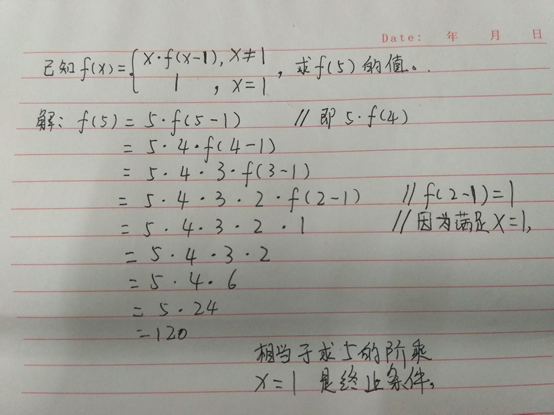 Date: 年 月 日
已知 f(x)={x·f(x-1), x≠1
1 , x=1 , 求f(5)的值。
解: f(5) = 5·f(5-1) //即 5·f(4)
= 5·4·f(4-1)
= 5·4·3·f(3-1)
= 5·4·3·2·f(2-1) //f(2-1)=1
= 5·4·3·2·1 //因为满足x=1,
= 5·4·3·2
= 5·4·6
= 5·24
=120
相当于求5的阶乘
x=1 是终止条件。